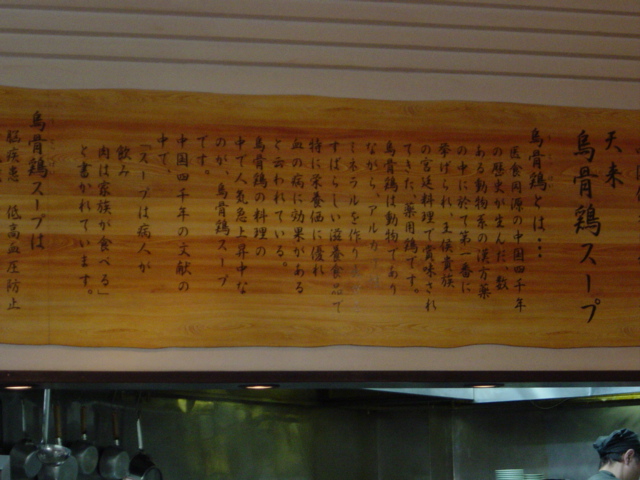 天来
烏骨鶏スープ
烏骨鶏とは…
医食同源の中国四千年
の歴史が生んだ、数
ある動物系の漢方薬
の中に於て第一番に
挙げられ、王侯貴族
の宮廷料理で賞味され
てきた、薬用鶏です。
烏骨鶏は動物であり
ながら、アルカリ
ミネラルを作り
すばらしい滋養食品で
特に栄養価に優れ
血の病に効果がある
と云われている。
烏骨鶏の料理の
中で人気急上昇中な
のが、烏骨鶏スープ
です。
中国四千年の文献の
中で、
「スープは病人が
飲み
肉は家族が食べる」
と書かれています。
烏骨鶏スープは
脳疾患 低高血圧防止